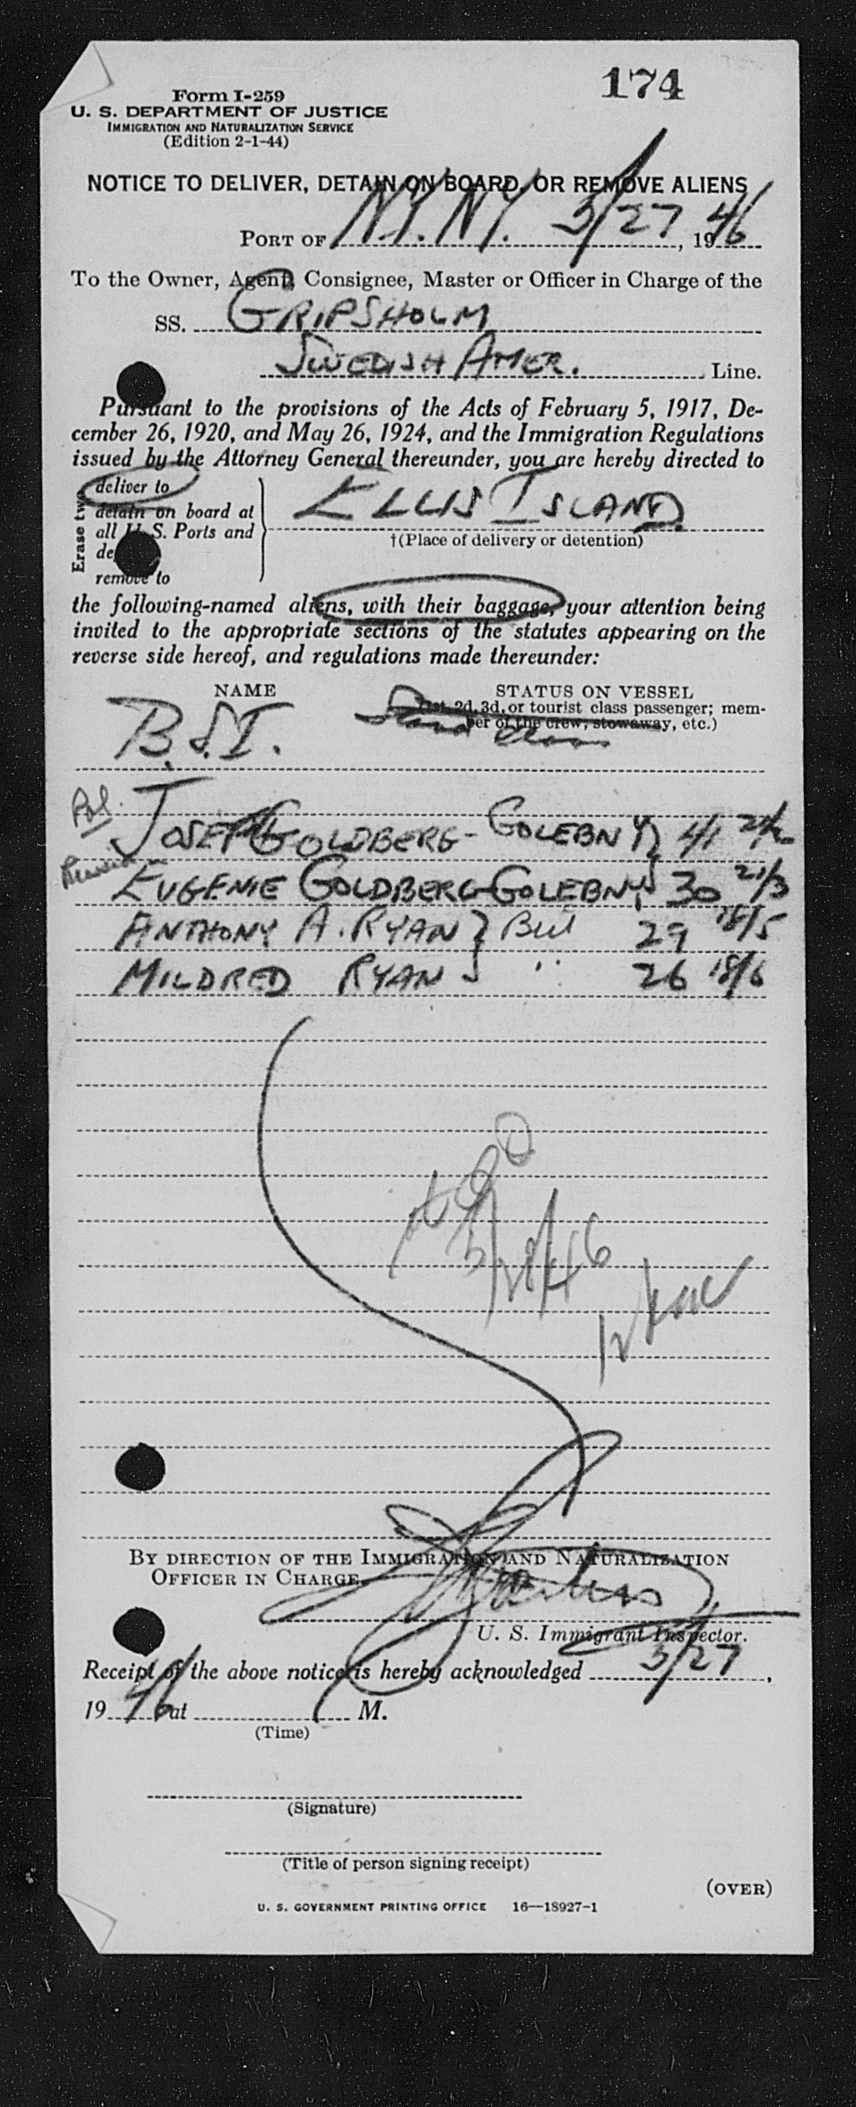 174
Form I-259
U. S. DEPARTMENT OF JUSTICE
IMMIGRATION AND NATURALIZATION SERVICE
(Edition 2-1-44)
NOTICE TO DELIVER, DETAIN ON BOARD, OR REMOVE ALIENS
PORT OF N.Y. N.Y. 5/27, 1946
To the Owner, Agent, Consignee, Master or Officer in Charge of the
SS. GRIPSHOLM
SWEDISH AMER. Line.
Pursuant to the provisions of the Acts of February 5, 1917, De-
cember 26, 1920, and May 26, 1924, and the Immigration Regulations
issued by the Attorney General thereunder, you are hereby directed to
Erase two
deliver to
detain on board at
all U. S. Ports and
remove to
ELLIS ISLAND
†(Place of delivery or detention)
the following-named aliens, with their baggage, your attention being
invited to the appropriate sections of the statutes appearing on the
reverse side hereof, and regulations made thereunder:
NAME STATUS ON VESSEL
(1st, 2d, 3d, or tourist class passenger; mem-
ber of the crew, stowaway, etc.)
B.S.I. class
Pol. JOSEF GOLDBERG-GOLEBNY 41
EUGENIE GOLDBERG-GOLEBNY 30 21/3
ANTHONY A. RYAN } 29 18/5
MILDRED RYAN " 26 18/6
5/28/46
BY DIRECTION OF THE IMMIGRATION AND NATURALIZATION
OFFICER IN CHARGE.
U. S. Immigrant Inspector.
Receipt of the above notice is hereby acknowledged 5/27,
1946 at M.
(Time)
(Signature)
(Title of person signing receipt)
(OVER)
U. S. GOVERNMENT PRINTING OFFICE 16—18927-1